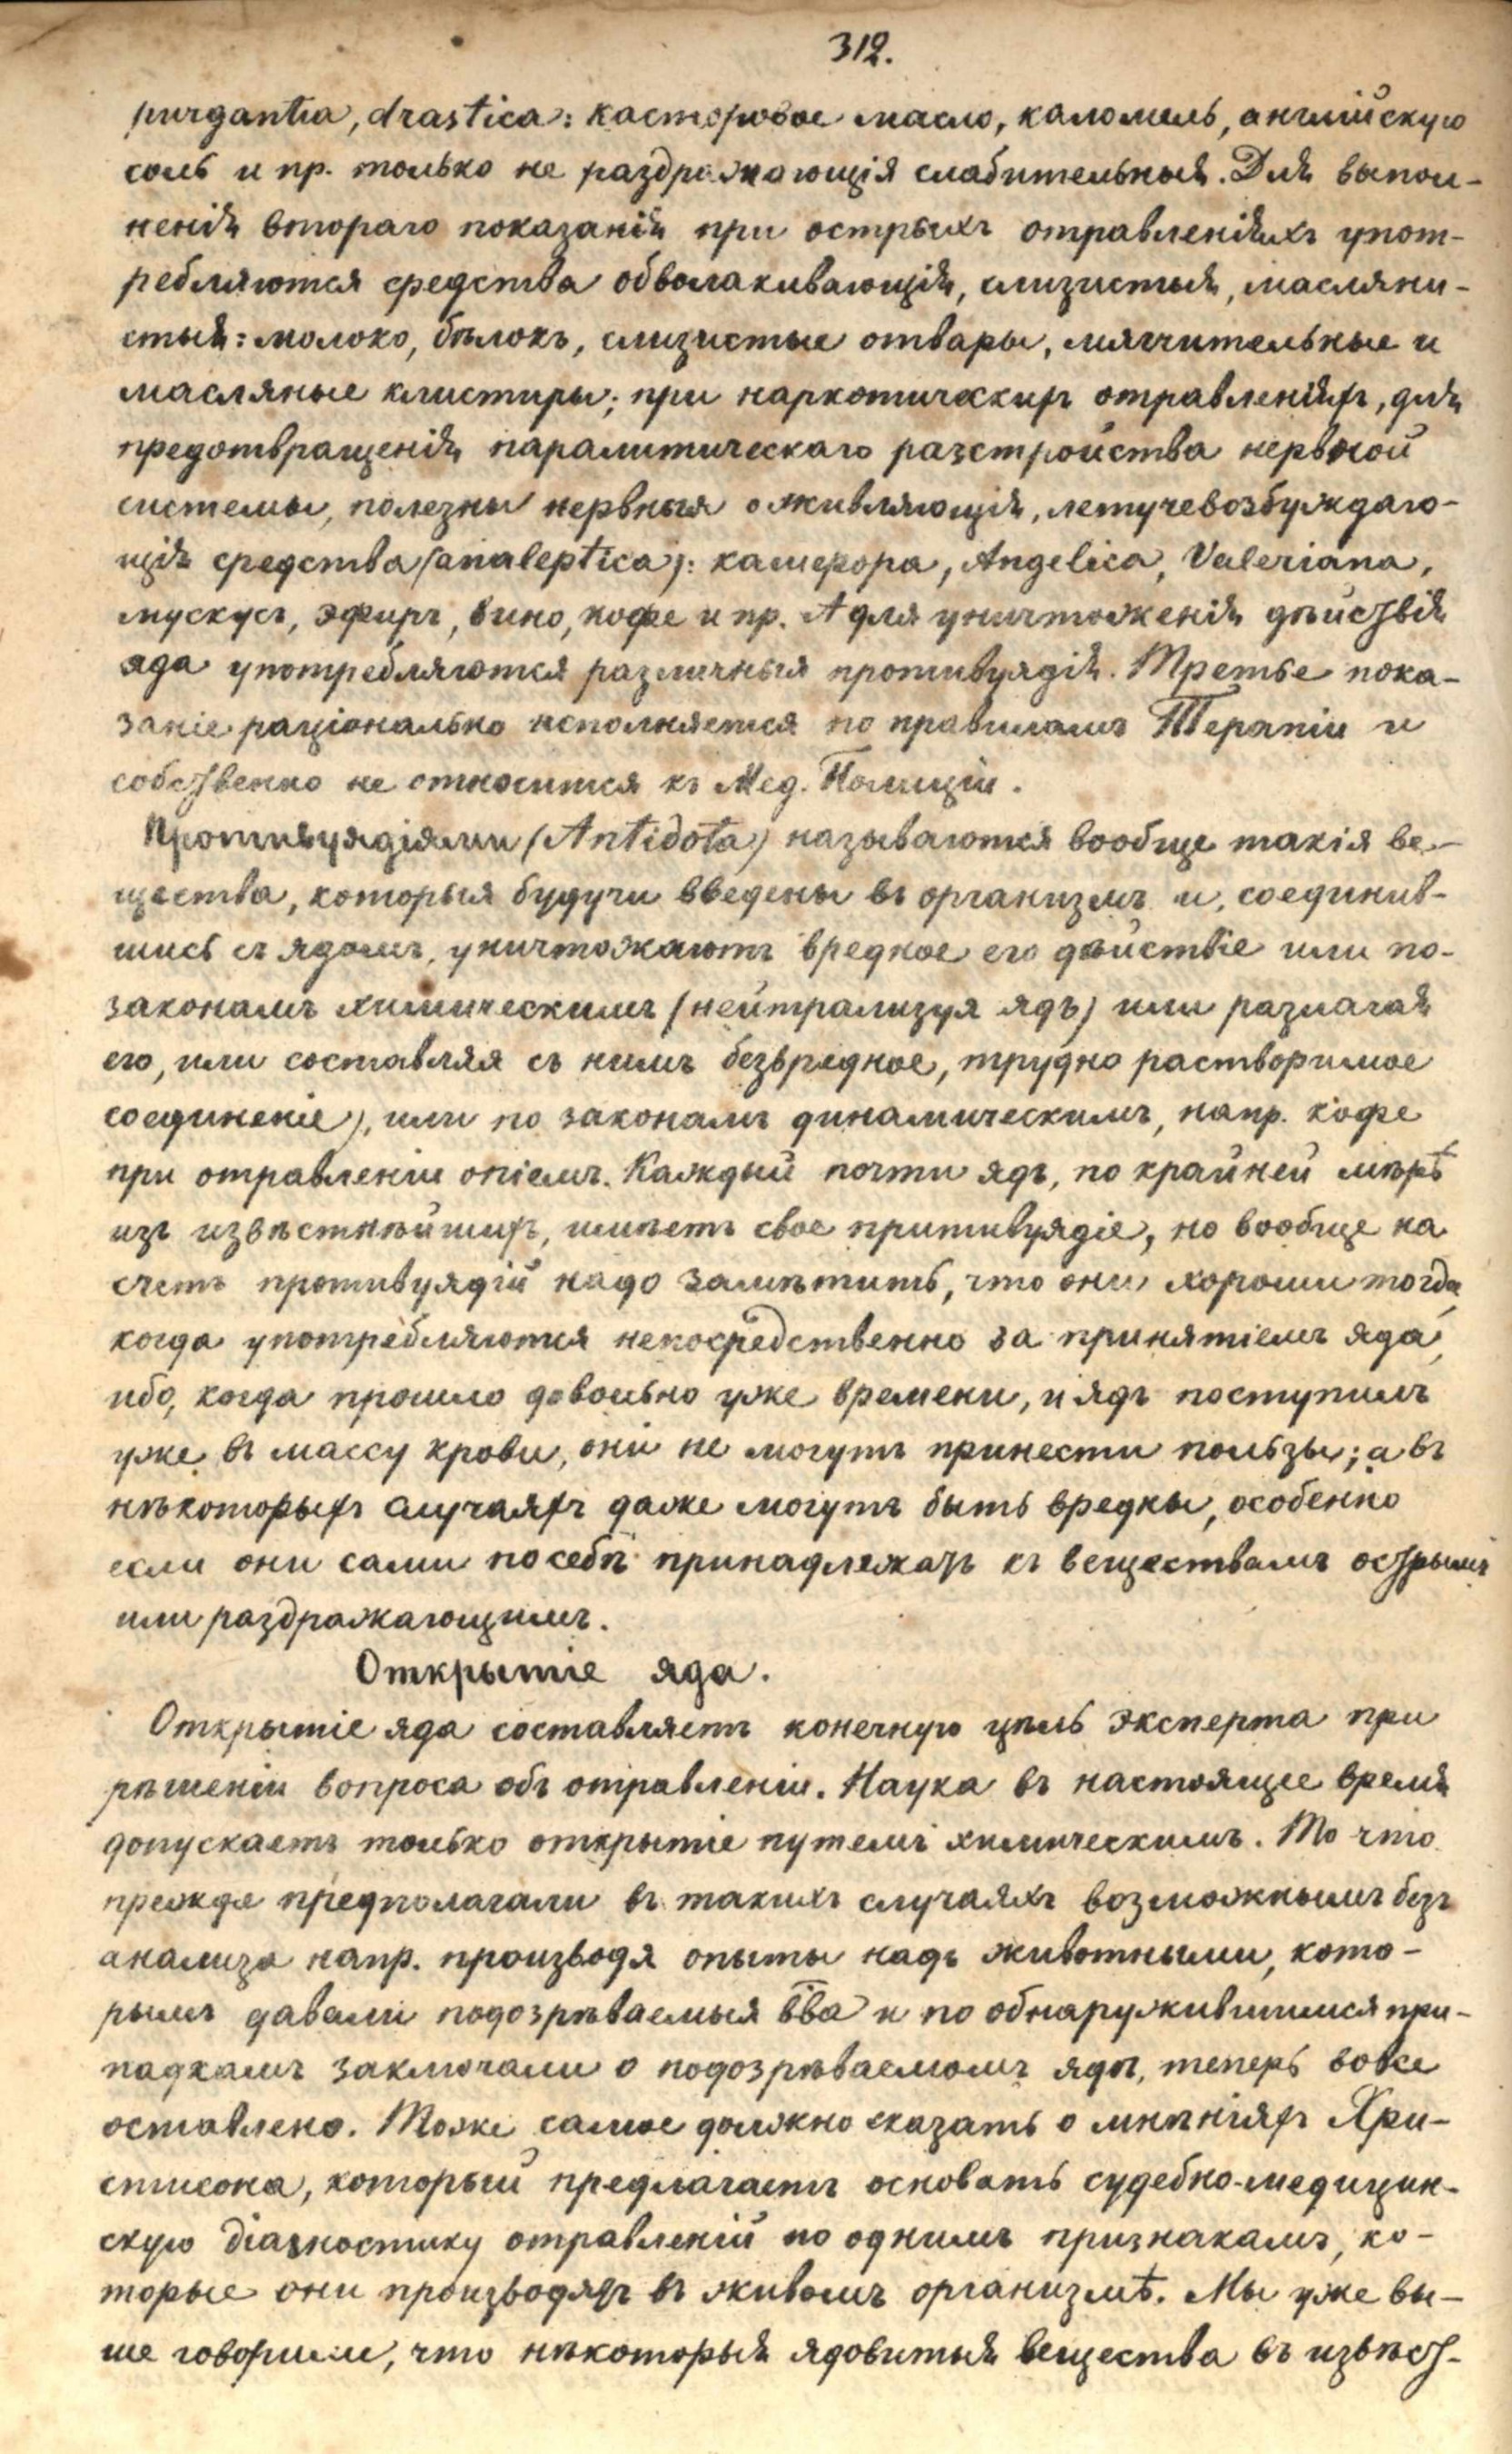 312.
purgantia, drastica: касторовое масло, каломель, англійскую
соль и пр. только не раздражающія слабительныя. Для выпол-
ненія втораго показанія при острыхъ отравленіяхъ упот-
ребляются средства обволакивающія, слизистыя, маслянис-
стыя: молоко, бѣлокъ, слизистые отвары, мягчительные и
масляные клистиры; при наркотическихъ отравленіяхъ, для
предотвращенія паралитическаго разстройства нервной
системы, полезны нервныя оживляющія, летучевозбуждаю-
щія средства (analeptica): камфора, Angelica, Valeriana,
мускусъ, эфиръ, вино, кофе и пр. А для уничтоженія дѣйствія
яда употребляются различныя противуядія. Третье пока-
заніе раціонально исполняется по правиламъ Терапіи и
собственно не относится къ Мед. Полиціи.
Противуядіями (Antidota) называются вообще такія ве-
щества, которыя будучи введены въ организмъ и, соединив-
шись съ ядомъ, уничтожаютъ вредное его дѣйствіе или по-
законамъ химическимъ (нейтрализуя ядъ) или разлагая
его, или составляя съ нимъ безвредное, трудно растворимое
соединеніе), или по законамъ динамическимъ, напр. кофе
при отравленіи опіемъ. Каждый почти ядъ, по крайней мѣрѣ
изъ извѣстнѣйшихъ, имѣетъ свое притивуядіе, но вообще на
счетъ противуядій надо замѣтить, что они хороши тогда,
когда употребляются непосредственно за принятіемъ яда,
ибо, когда прошло довольно уже времени, и ядъ поступилъ
уже въ массу крови, они не могутъ принести пользы; а въ
нѣкоторыхъ случаяхъ даже могутъ быть вредны, особенно
если они сами по себѣ принадлежатъ къ веществамъ острымъ
или раздражающимъ.
Открытіе яда.
Открытіе яда составляетъ конечную цѣль эксперта при
рѣшеніи вопроса объ отравленіи. Наука въ настоящее время
допускаетъ только открытіе путемъ химическимъ. То что
прежде предполагали въ такихъ случаяхъ возможнымъ безъ
анализа напр. производя опыты надъ животными, кото-
рымъ давали подозрѣваемыя вва и по обнаружившимся при-
падкамъ заключали о подозрѣваемомъ ядѣ, теперь вовсе
оставлено. Тоже самое должно сказать о мнѣніяхъ Хри-
стисона, который предлагаетъ основать судебно-медицин-
скую діагностику отравленій по однимъ признакамъ, ко-
торые они производятъ въ живомъ организмѣ. Мы уже вы-
ше говорили, что нѣкоторыя ядовитыя вещества въ извѣст-